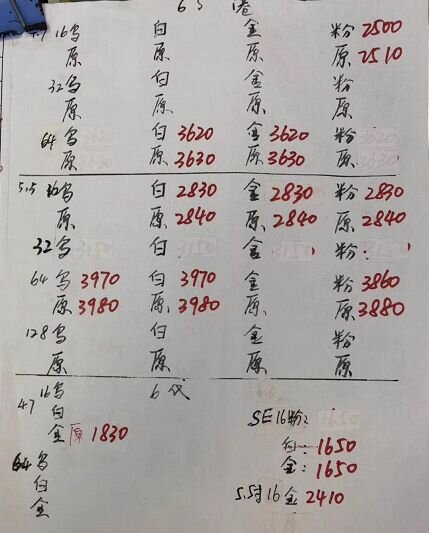 6S 港
4.7 16乌 白 金 粉 2500
原 原 原 原 2510
32乌 白 金 粉
原 原 原 原
64乌 白 3620 金 3620 粉
原 原 3630 原 3630 原
5.5 16乌 白 2830 金 2830 粉 2830
原 原 2840 原 2840 原 2840
32乌 白 金 粉
64乌 3970 白 3970 金 粉 3860
原 3980 原 3980 原 原 3880
128乌 白 金 粉
原 原 原 原
4.7 16乌 6代
白 SE16粉:
金 原 1830 白: 1650
64乌 金: 1650
白 5.5寸16金 2410
金